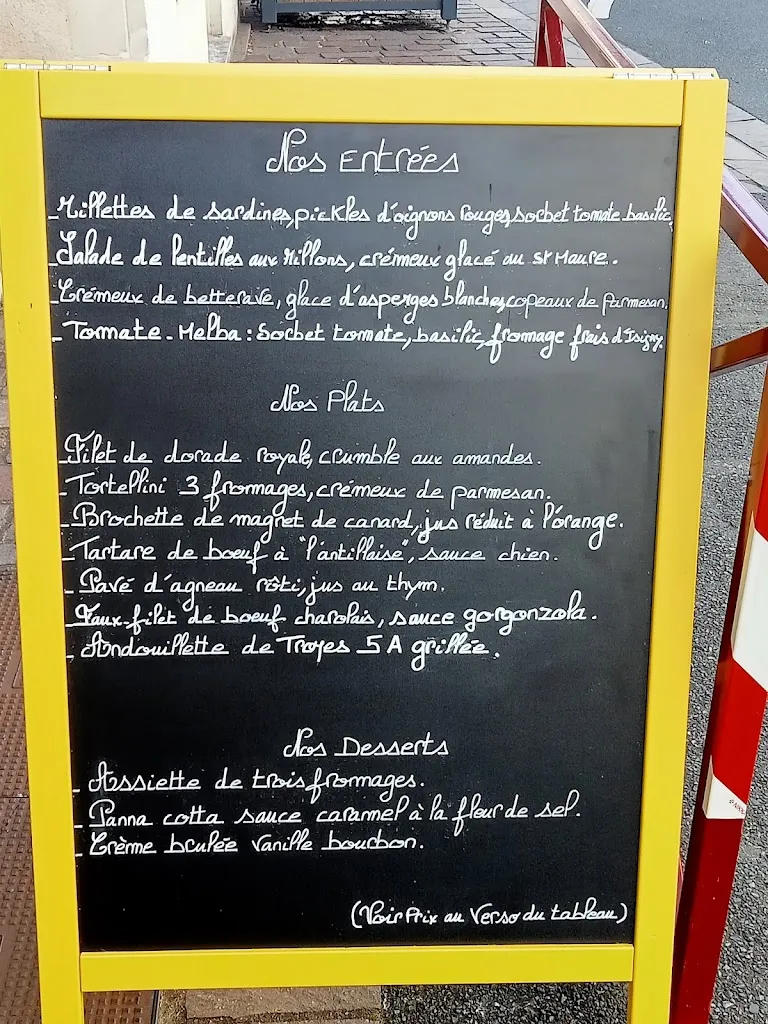 Nos Entrées
- Rillettes de sardines, pickles d'oignons rouges, sorbet tomate basilic.
- Salade de lentilles aux rillons, crémeux glacé au St Maure.
- Crémeux de betterave, glace d'asperges blanches, copeaux de parmesan.
- Tomate-Melba : Sorbet tomate, basilic, fromage frais d'Isigny.
Nos Plats
- Filet de dorade royale, crumble aux amandes.
- Tortellini 3 fromages, crémeux de parmesan.
- Brochette de magret de canard, jus réduit à l'orange.
- Tartare de boeuf à "l'antillaise", sauce chien.
- Pavé d'agneau rôti, jus au thym.
- Faux-filet de boeuf charolais, sauce gorgonzola.
- Andouillette de Troyes 5 A grillée.
Nos Desserts
- Assiette de trois fromages.
- Panna cotta sauce caramel à la fleur de sel.
- Crème brulée vanille bourbon.
(Voir Prix au Verso du tableau)